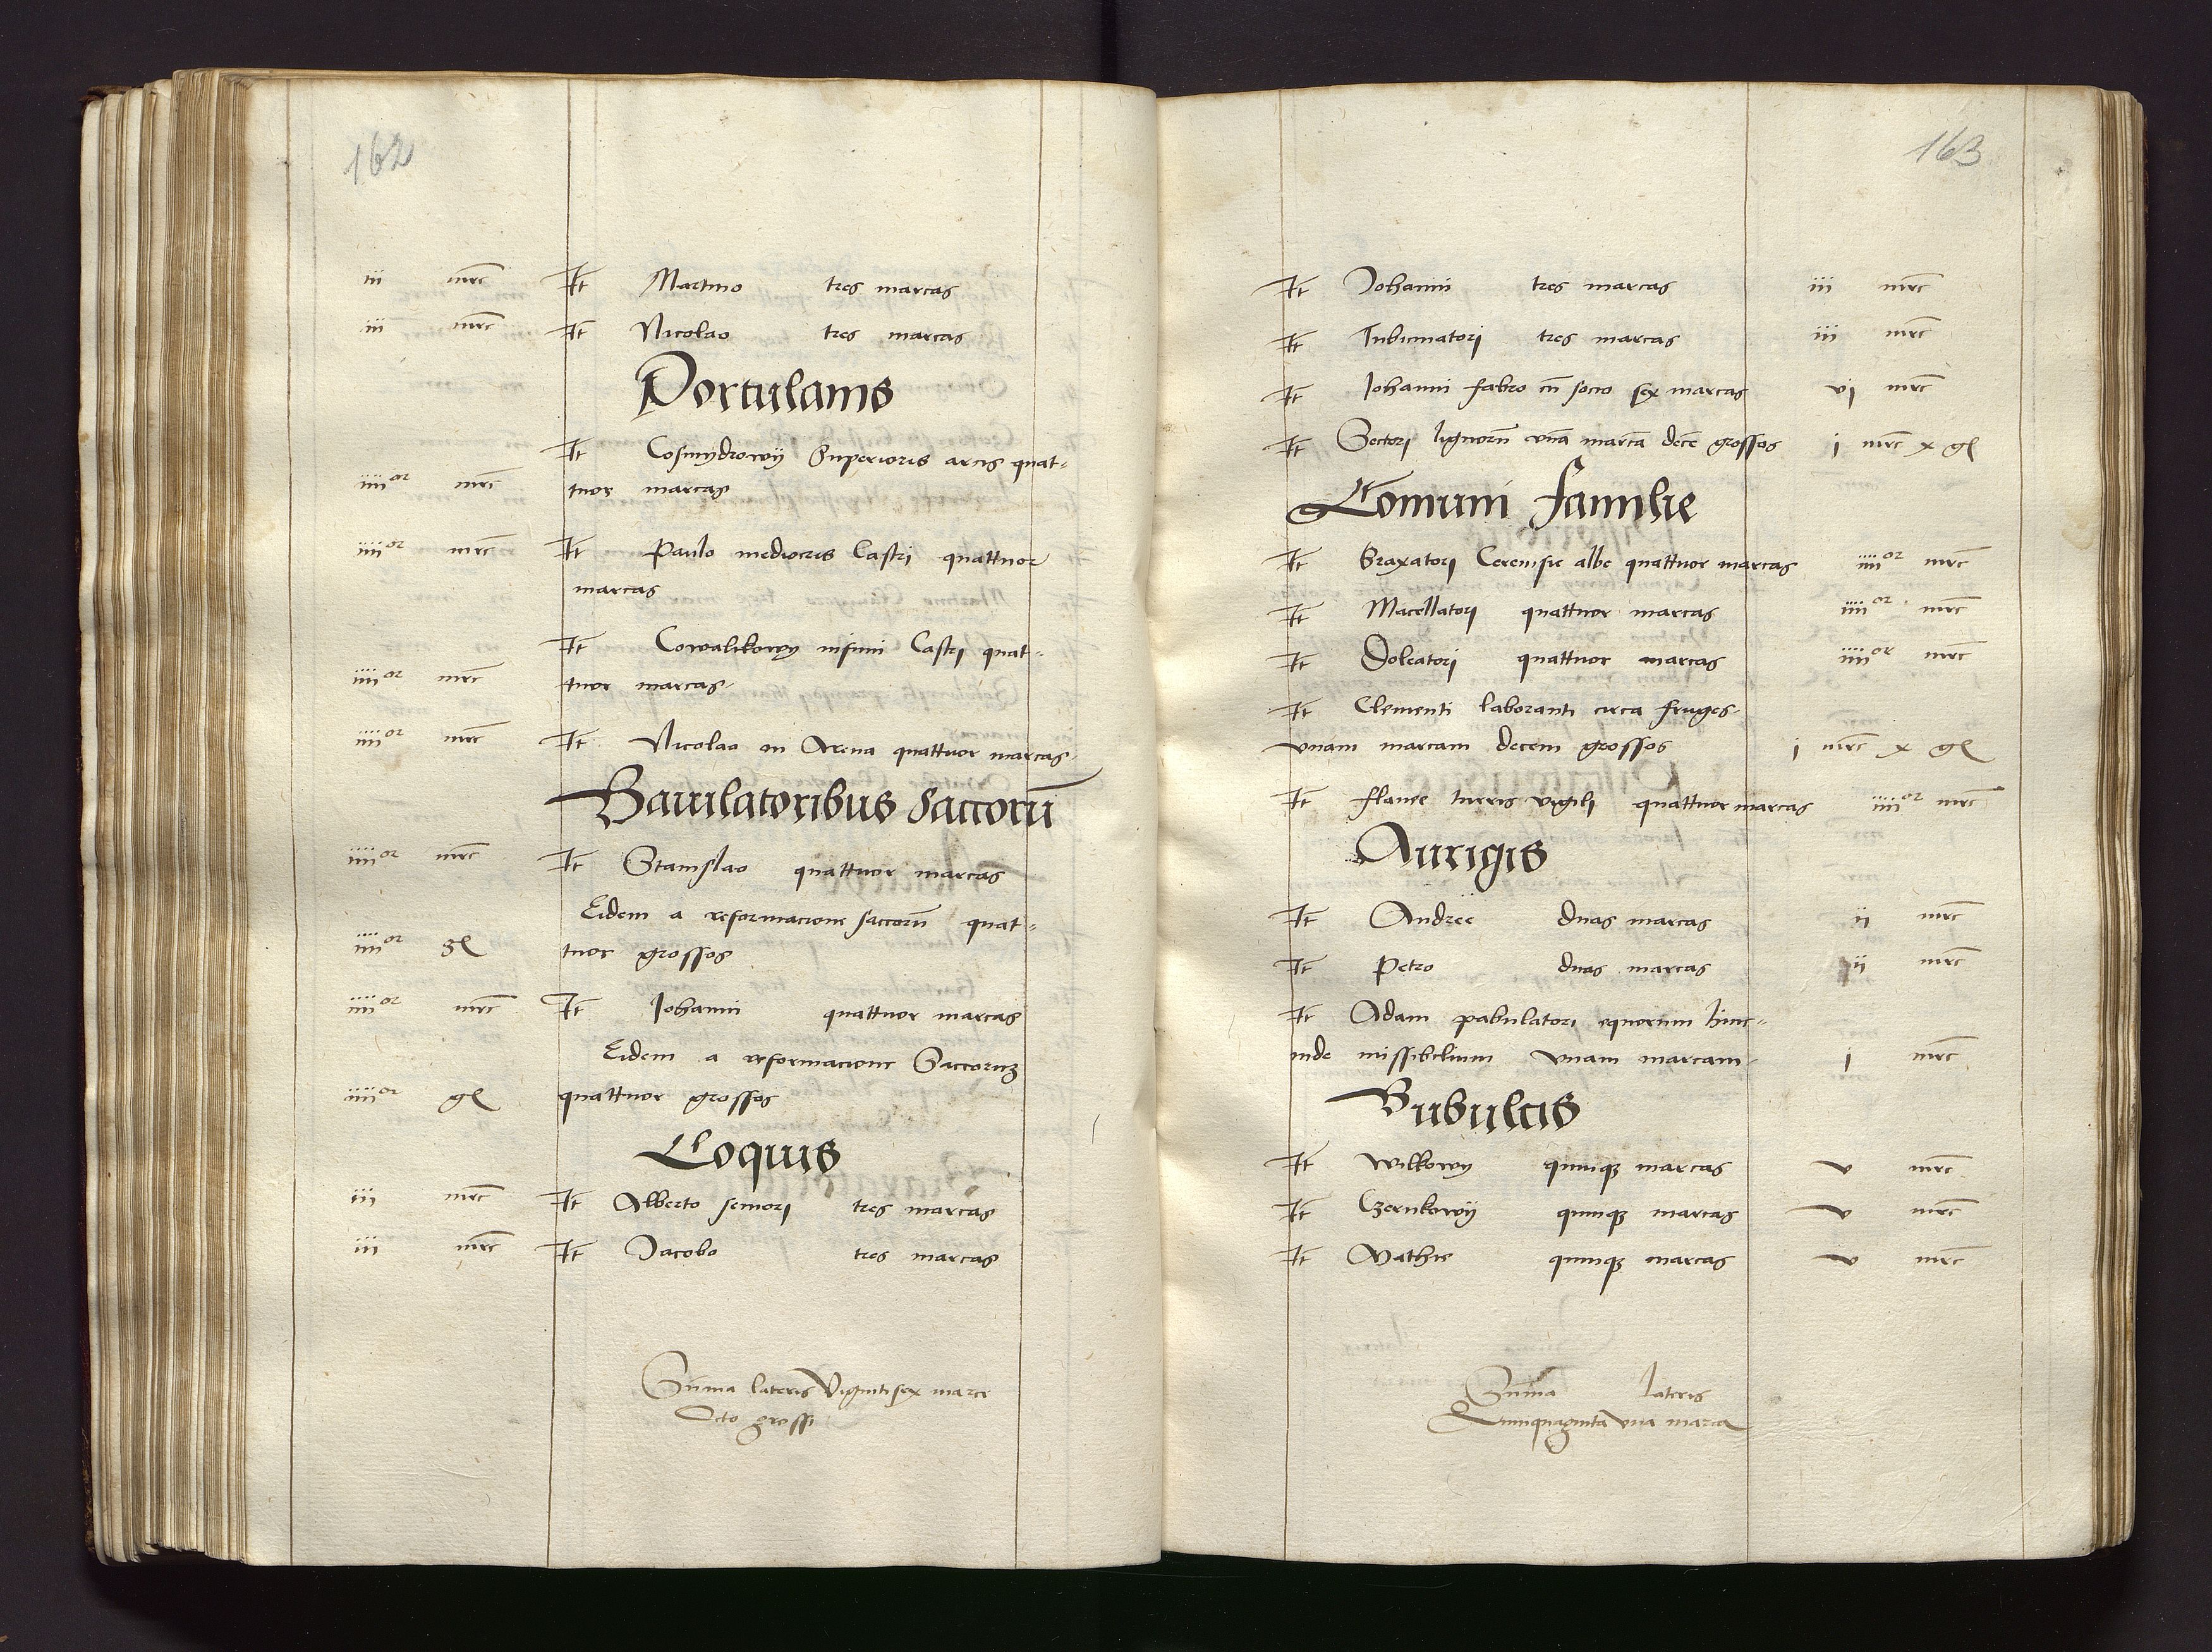 162
iii mrc It Martino tres marcas
iii mrc It Nicolao tres marcas
Portulanis
It Cosmydrowy Superioris arcis quat-
iiii or mrc tuor marcas
iiii or mrc It Paulo mediocris Castri quattuor
marcas
It Cowalikowy infimi Castri quat-
iiii or mrc tuor marcas
iiii or mrc It Nicolao in Arena quattuor marcas
Baiulatoribus saccorū
iiii or mrc It Stanislao quattuor marcas
Eidem a reformacione saccorū quat-
iiii or gl tuor grossos
iiii or mrc It Johanni quattuor marcas
Eidem a reformacione Saccorum
iiii or gl quattuor grossos
Coquis
iii mrc It Alberto seniori tres marcas
iii mrc It Jacobo tres marcas
Sūma lateris Vigintisex marce
Octo grossi
163
It Johanni tres marcas iii mrc
It Tubicinatori tres marcas iii mrc
It Johanni fabro cū socio sex marcas vi mrc
It Sectori lignorū vnā marcā decē grossos i mrc x gl
Comuni familie
It Braxatori Cerevisie albe quattuor marcas iiii or mrc
It Macellatori quattuor marcas iiii or mrc
It Doleatori quattuor marcas iiii or mrc
It Clementi laboranti circa fruges
vnam marcam decem grossos i mrc x gl
It flavee turris vigili quattuor marcas iiii or mrc
Aurigis
It Andree duas marcas ii mrc
It Petro duas marcas ii mrc
It Adam pabulatori equorum hinc-
inde missibilium vnam marcam i mrc
Bubulcis
It Wilkowy quinqȝ marcas v mrc
It Czernkowy quinqȝ marcas v mrc
It Mathie quinqȝ marcas v mrc
Sūma lateris
Quinquaginta vna marca